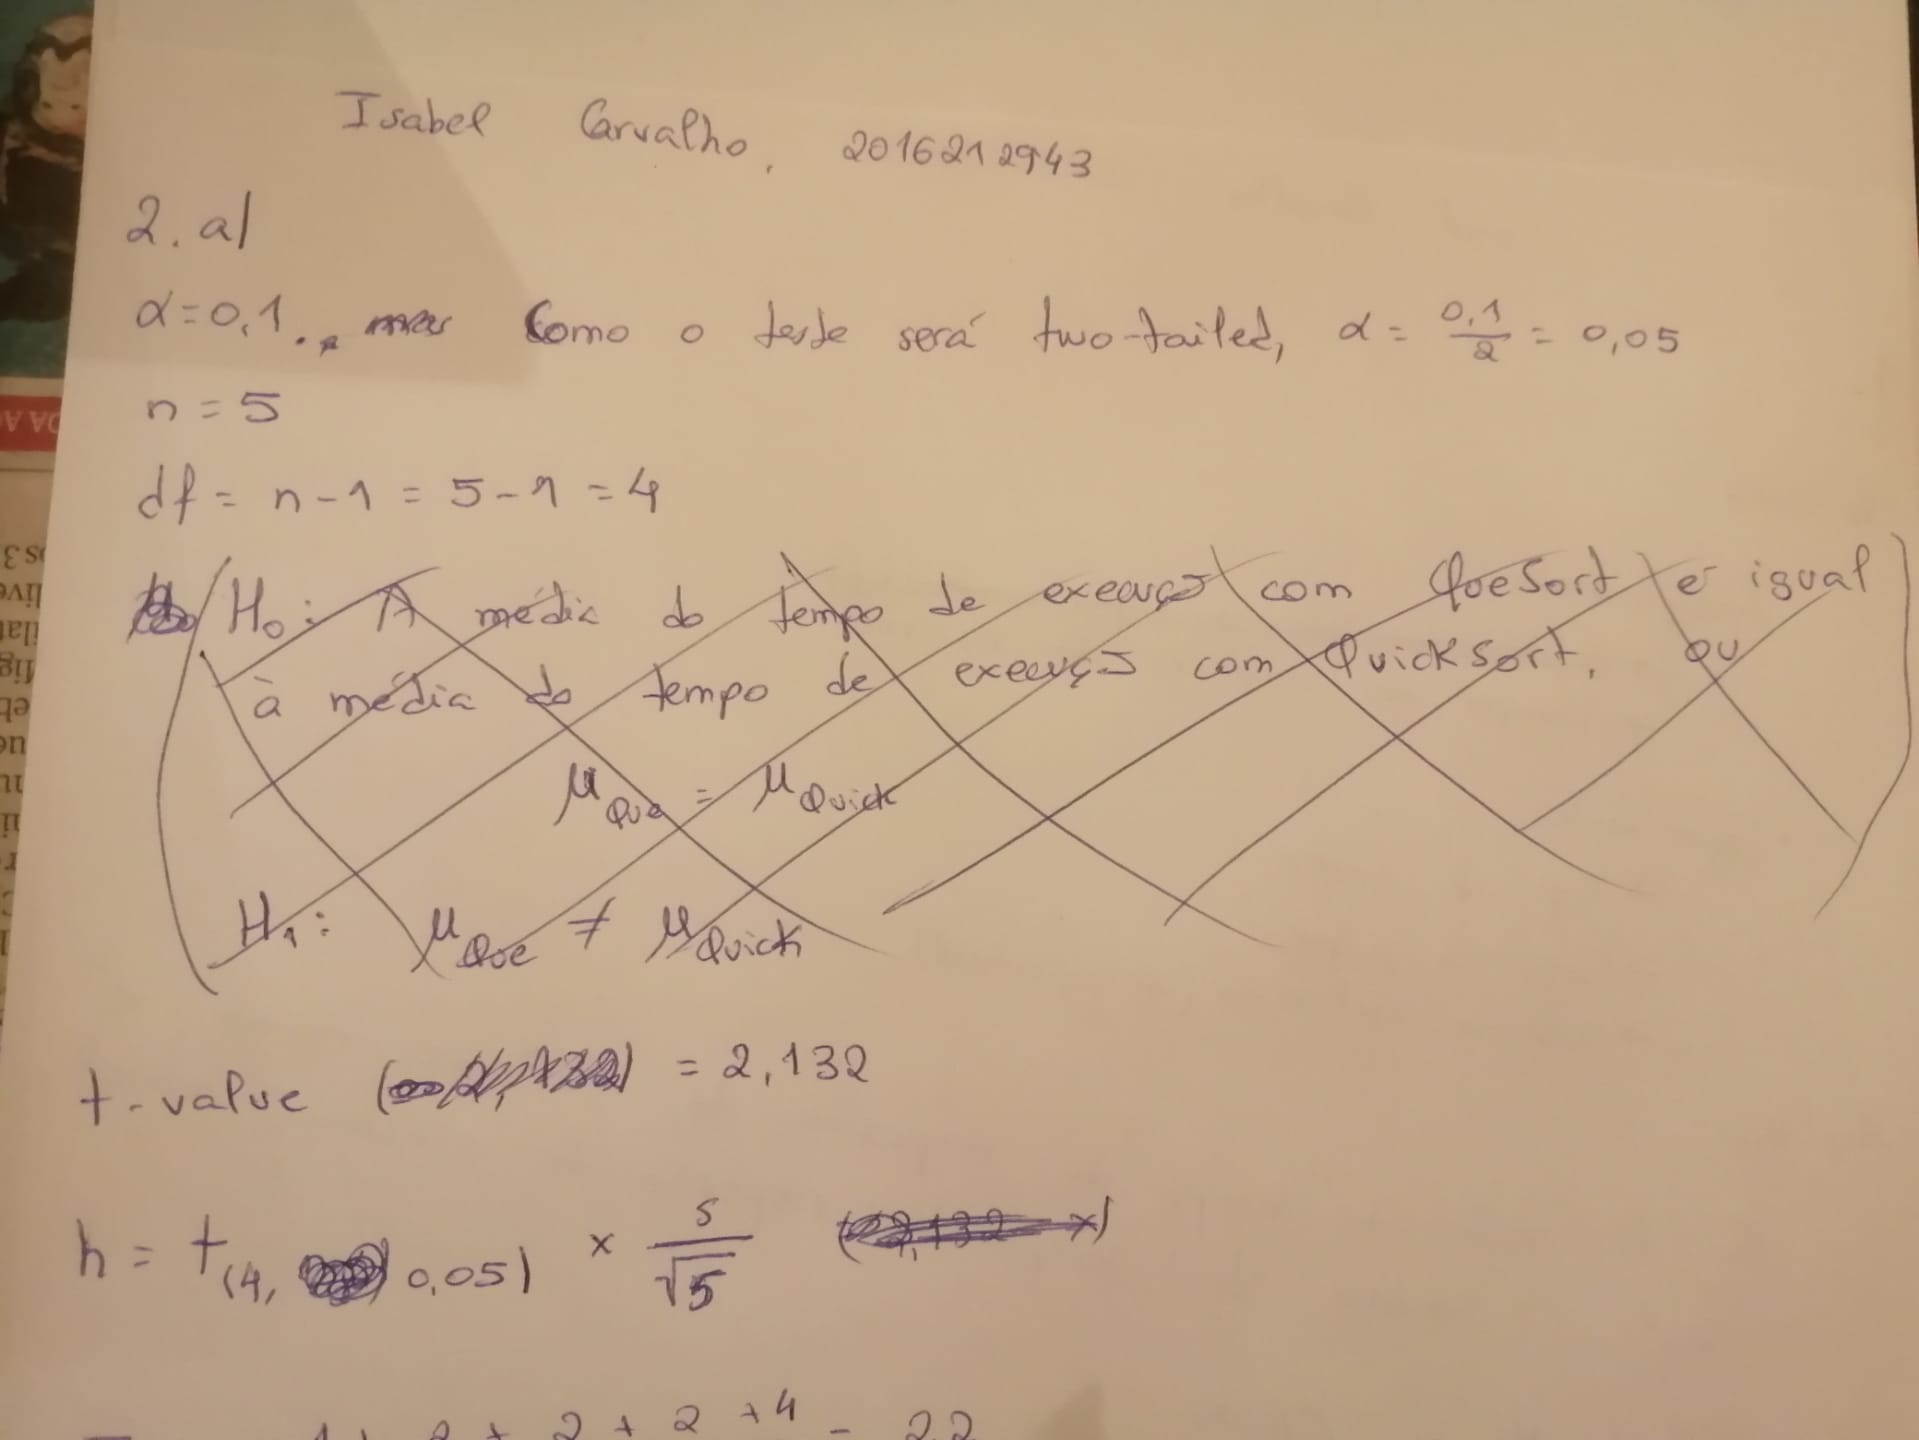 Isabel Carvalho, 2016212943
2. a)
α = 0,1. Como o teste será two-tailed, α = 0,1/2 = 0,05
n = 5
df = n - 1 = 5 - 1 = 4
H₀: A média do tempo de execução com QueSort é igual
à média do tempo de execução com QuickSort, ou
μ Que = μ Quick
H₁: μ Que ≠ μ Quick
t-value (2,132) = 2,132
h = t(4, 0,05) × s/√5
+ 2 + 2 + 4 = 2.2